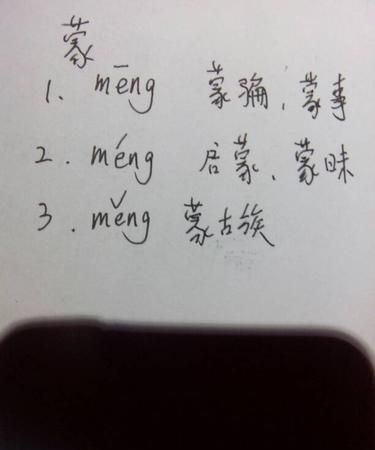 蒙
1. mēng 蒙骗、蒙事
2. méng 启蒙、蒙昧
3. měng 蒙古族